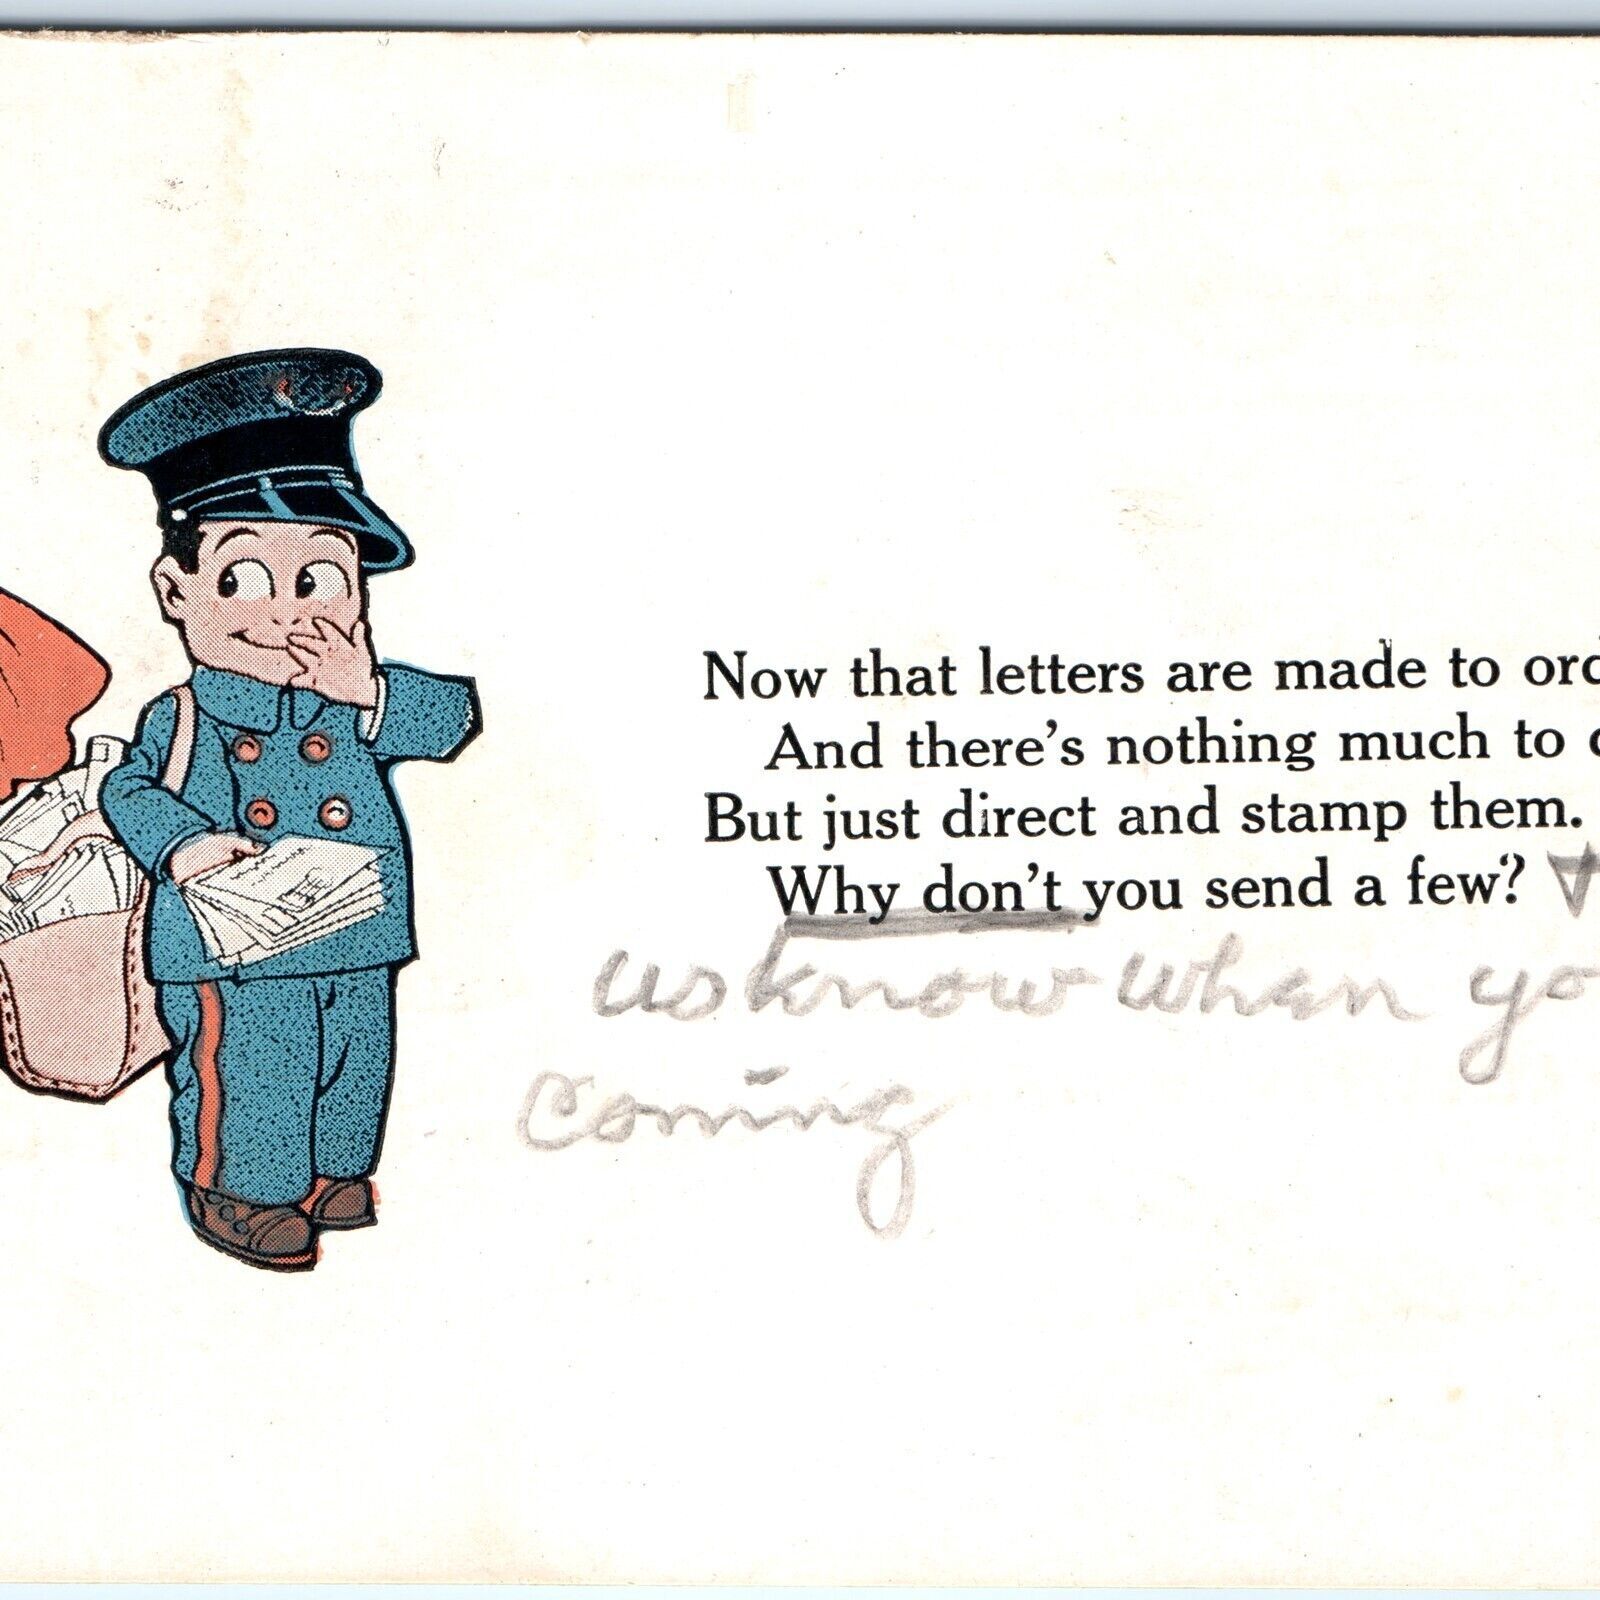 Now that letters are made to ord
And there's nothing much to
But just direct and stamp them.
Why don't you send a few?
us know whan yo
coming